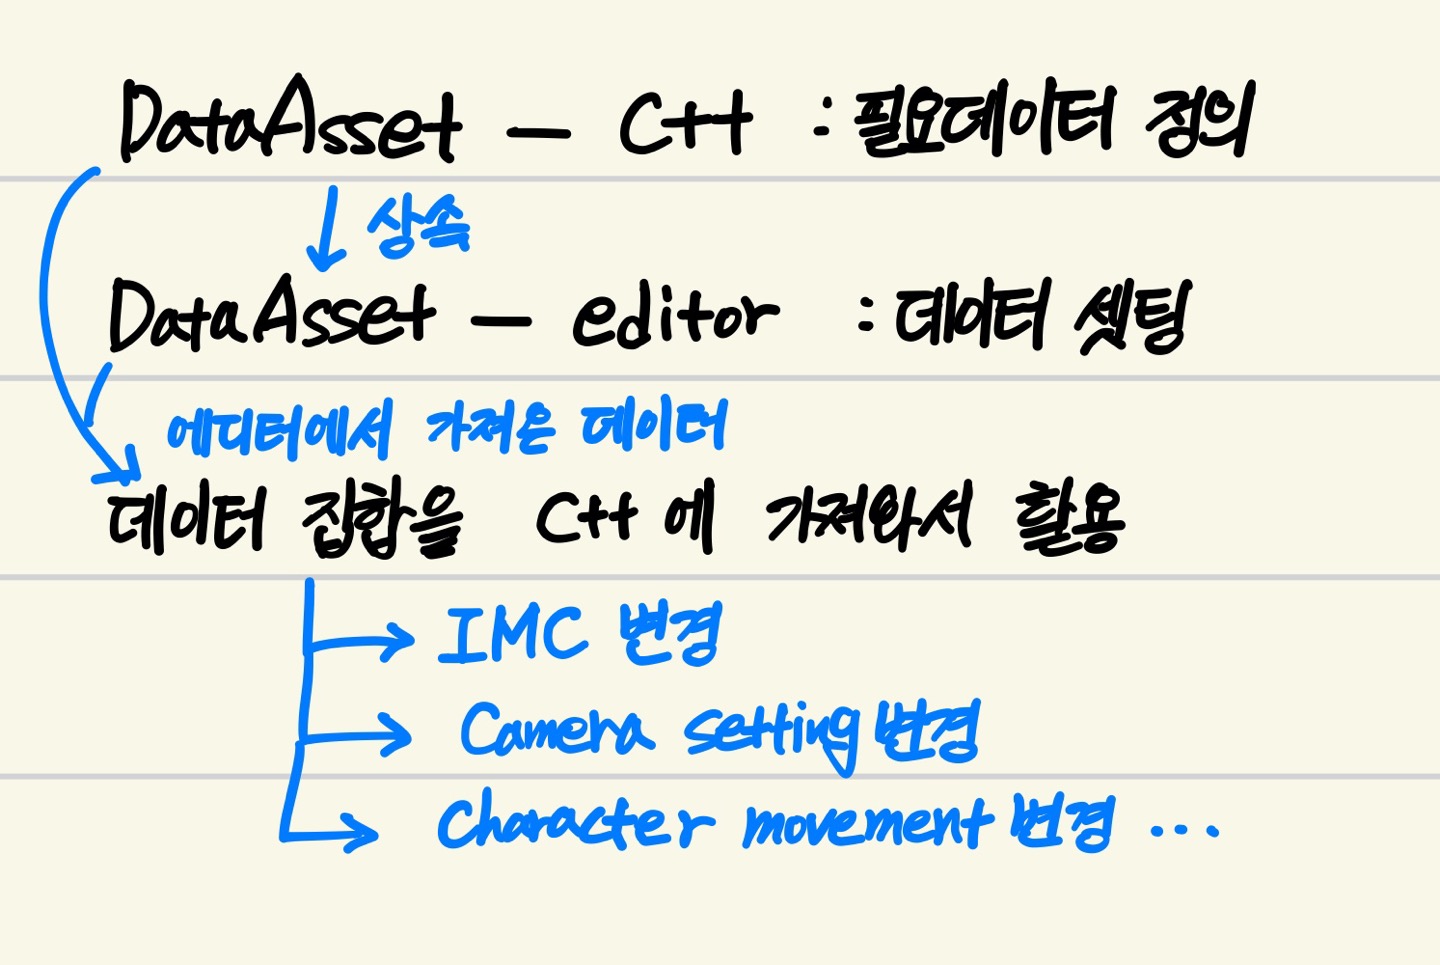 DataAsset - C++ : 필요데이터 정의
상속
DataAsset - editor : 데이터 셋팅
에디터에서 가져온 데이터
데이터 집합을 C++ 에 가져와서 활용
IMC 변경
Camera setting 변경
Character movement 변경 ...